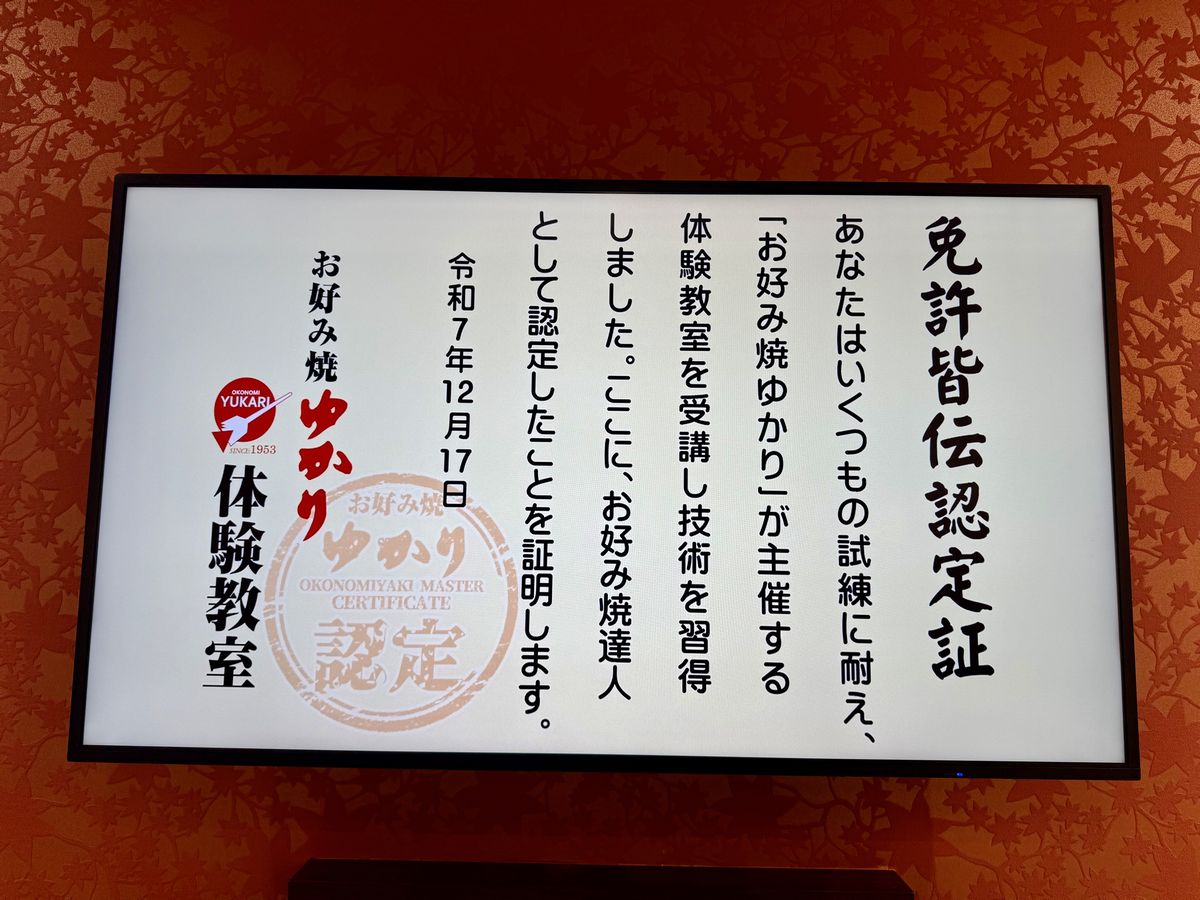 免許皆伝認定証
あなたはいくつもの試練に耐え、
「お好み焼ゆかり」が主催する
体験教室を受講し技術を習得
しました。ここに、お好み焼達人
として認定したことを証明します。
令和7年12月17日
お好み焼ゆかり
OKONOMI
YUKARI
SINCE 1953
体験教室
お好み焼
ゆかり
OKONOMIYAKI MASTER
CERTIFICATE
認定